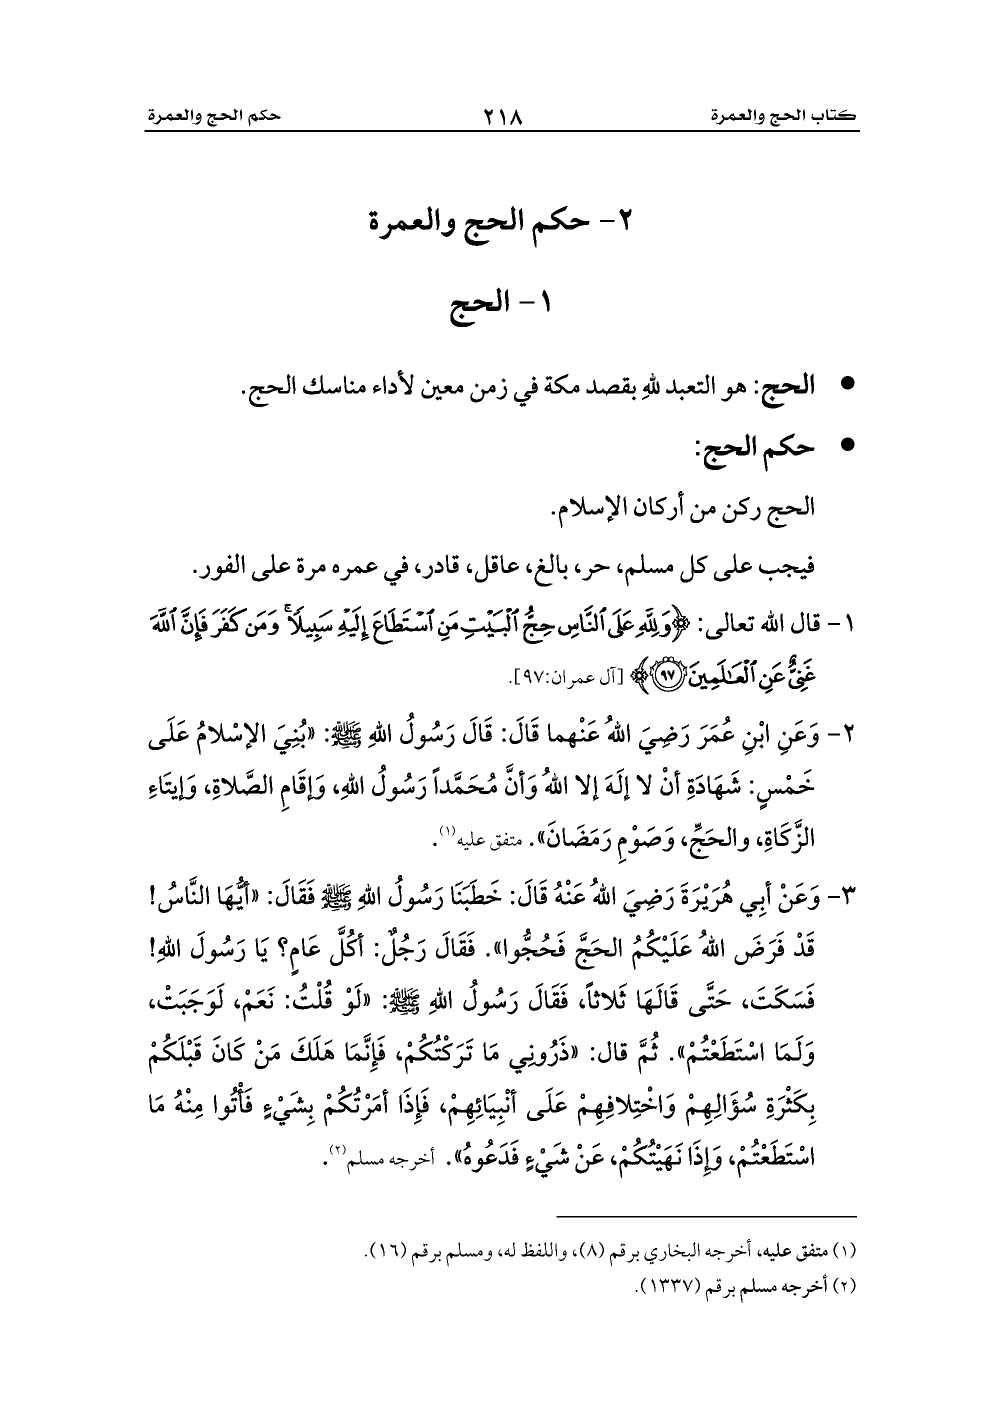 كتاب الحج والعمرة ٢١٨ حكم الحج والعمرة
٢- حكم الحج والعمرة
١- الحج
● الحج: هو التعبد للهِ بقصد مكة في زمن معين لأداء مناسك الحج.
● حكم الحج:
الحج ركن من أركان الإسلام.
فيجب على كل مسلم، حر، بالغ، عاقل، قادر، في عمره مرة على الفور.
١- قال الله تعالى: ﴿وَلِلَّهِ عَلَى ٱلنَّاسِ حِجُّ ٱلۡبَيۡتِ مَنِ ٱسۡتَطَاعَ إِلَيۡهِ سَبِيلٗاۚ وَمَن كَفَرَ فَإِنَّ ٱللَّهَ
غَنِيٌّ عَنِ ٱلۡعَٰلَمِينَ ٩٧﴾ [آل عمران:٩٧].
٢- وَعَنِ ابْنِ عُمَرَ رَضِيَ اللهُ عَنْهما قَالَ: قَالَ رَسُولُ اللهِ ﷺ: «بُنِيَ الإسْلامُ عَلَى
خَمْسٍ: شَهَادَةِ أنْ لا إلَهَ إلا اللهُ وَأنَّ مُحَمَّداً رَسُولُ اللهِ، وَإقَامِ الصَّلاةِ، وَإيتَاءِ
الزَّكَاةِ، والحَجِّ، وَصَوْمِ رَمَضَانَ». متفق عليه(١).
٣- وَعَنْ أبِي هُرَيْرَةَ رَضِيَ اللهُ عَنْهُ قَالَ: خَطَبَنَا رَسُولُ اللهِ ﷺ فَقَالَ: «أيُّهَا النَّاسُ!
قَدْ فَرَضَ اللهُ عَلَيْكُمُ الحَجَّ فَحُجُّوا». فَقَالَ رَجُلٌ: أكُلَّ عَامٍ؟ يَا رَسُولَ اللهِ!
فَسَكَتَ، حَتَّى قَالَهَا ثَلاثاً، فَقَالَ رَسُولُ اللهِ ﷺ: «لَوْ قُلْتُ: نَعَمْ، لَوَجَبَتْ،
وَلَمَا اسْتَطَعْتُمْ». ثُمَّ قال: «ذَرُونِي مَا تَرَكْتُكُمْ، فَإنَّمَا هَلَكَ مَنْ كَانَ قَبْلَكُمْ
بِكَثْرَةِ سُؤَالِهِمْ وَاخْتِلافِهِمْ عَلَى أنْبِيَائِهِمْ، فَإذَا أمَرْتُكُمْ بِشَيْءٍ فَأْتُوا مِنْهُ مَا
اسْتَطَعْتُمْ، وَإذَا نَهَيْتُكُمْ، عَنْ شَيْءٍ فَدَعُوهُ». أخرجه مسلم(٢).
(١) متفق عليه، أخرجه البخاري برقم (٨)، واللفظ له، ومسلم برقم (١٦).
(٢) أخرجه مسلم برقم (١٣٣٧).